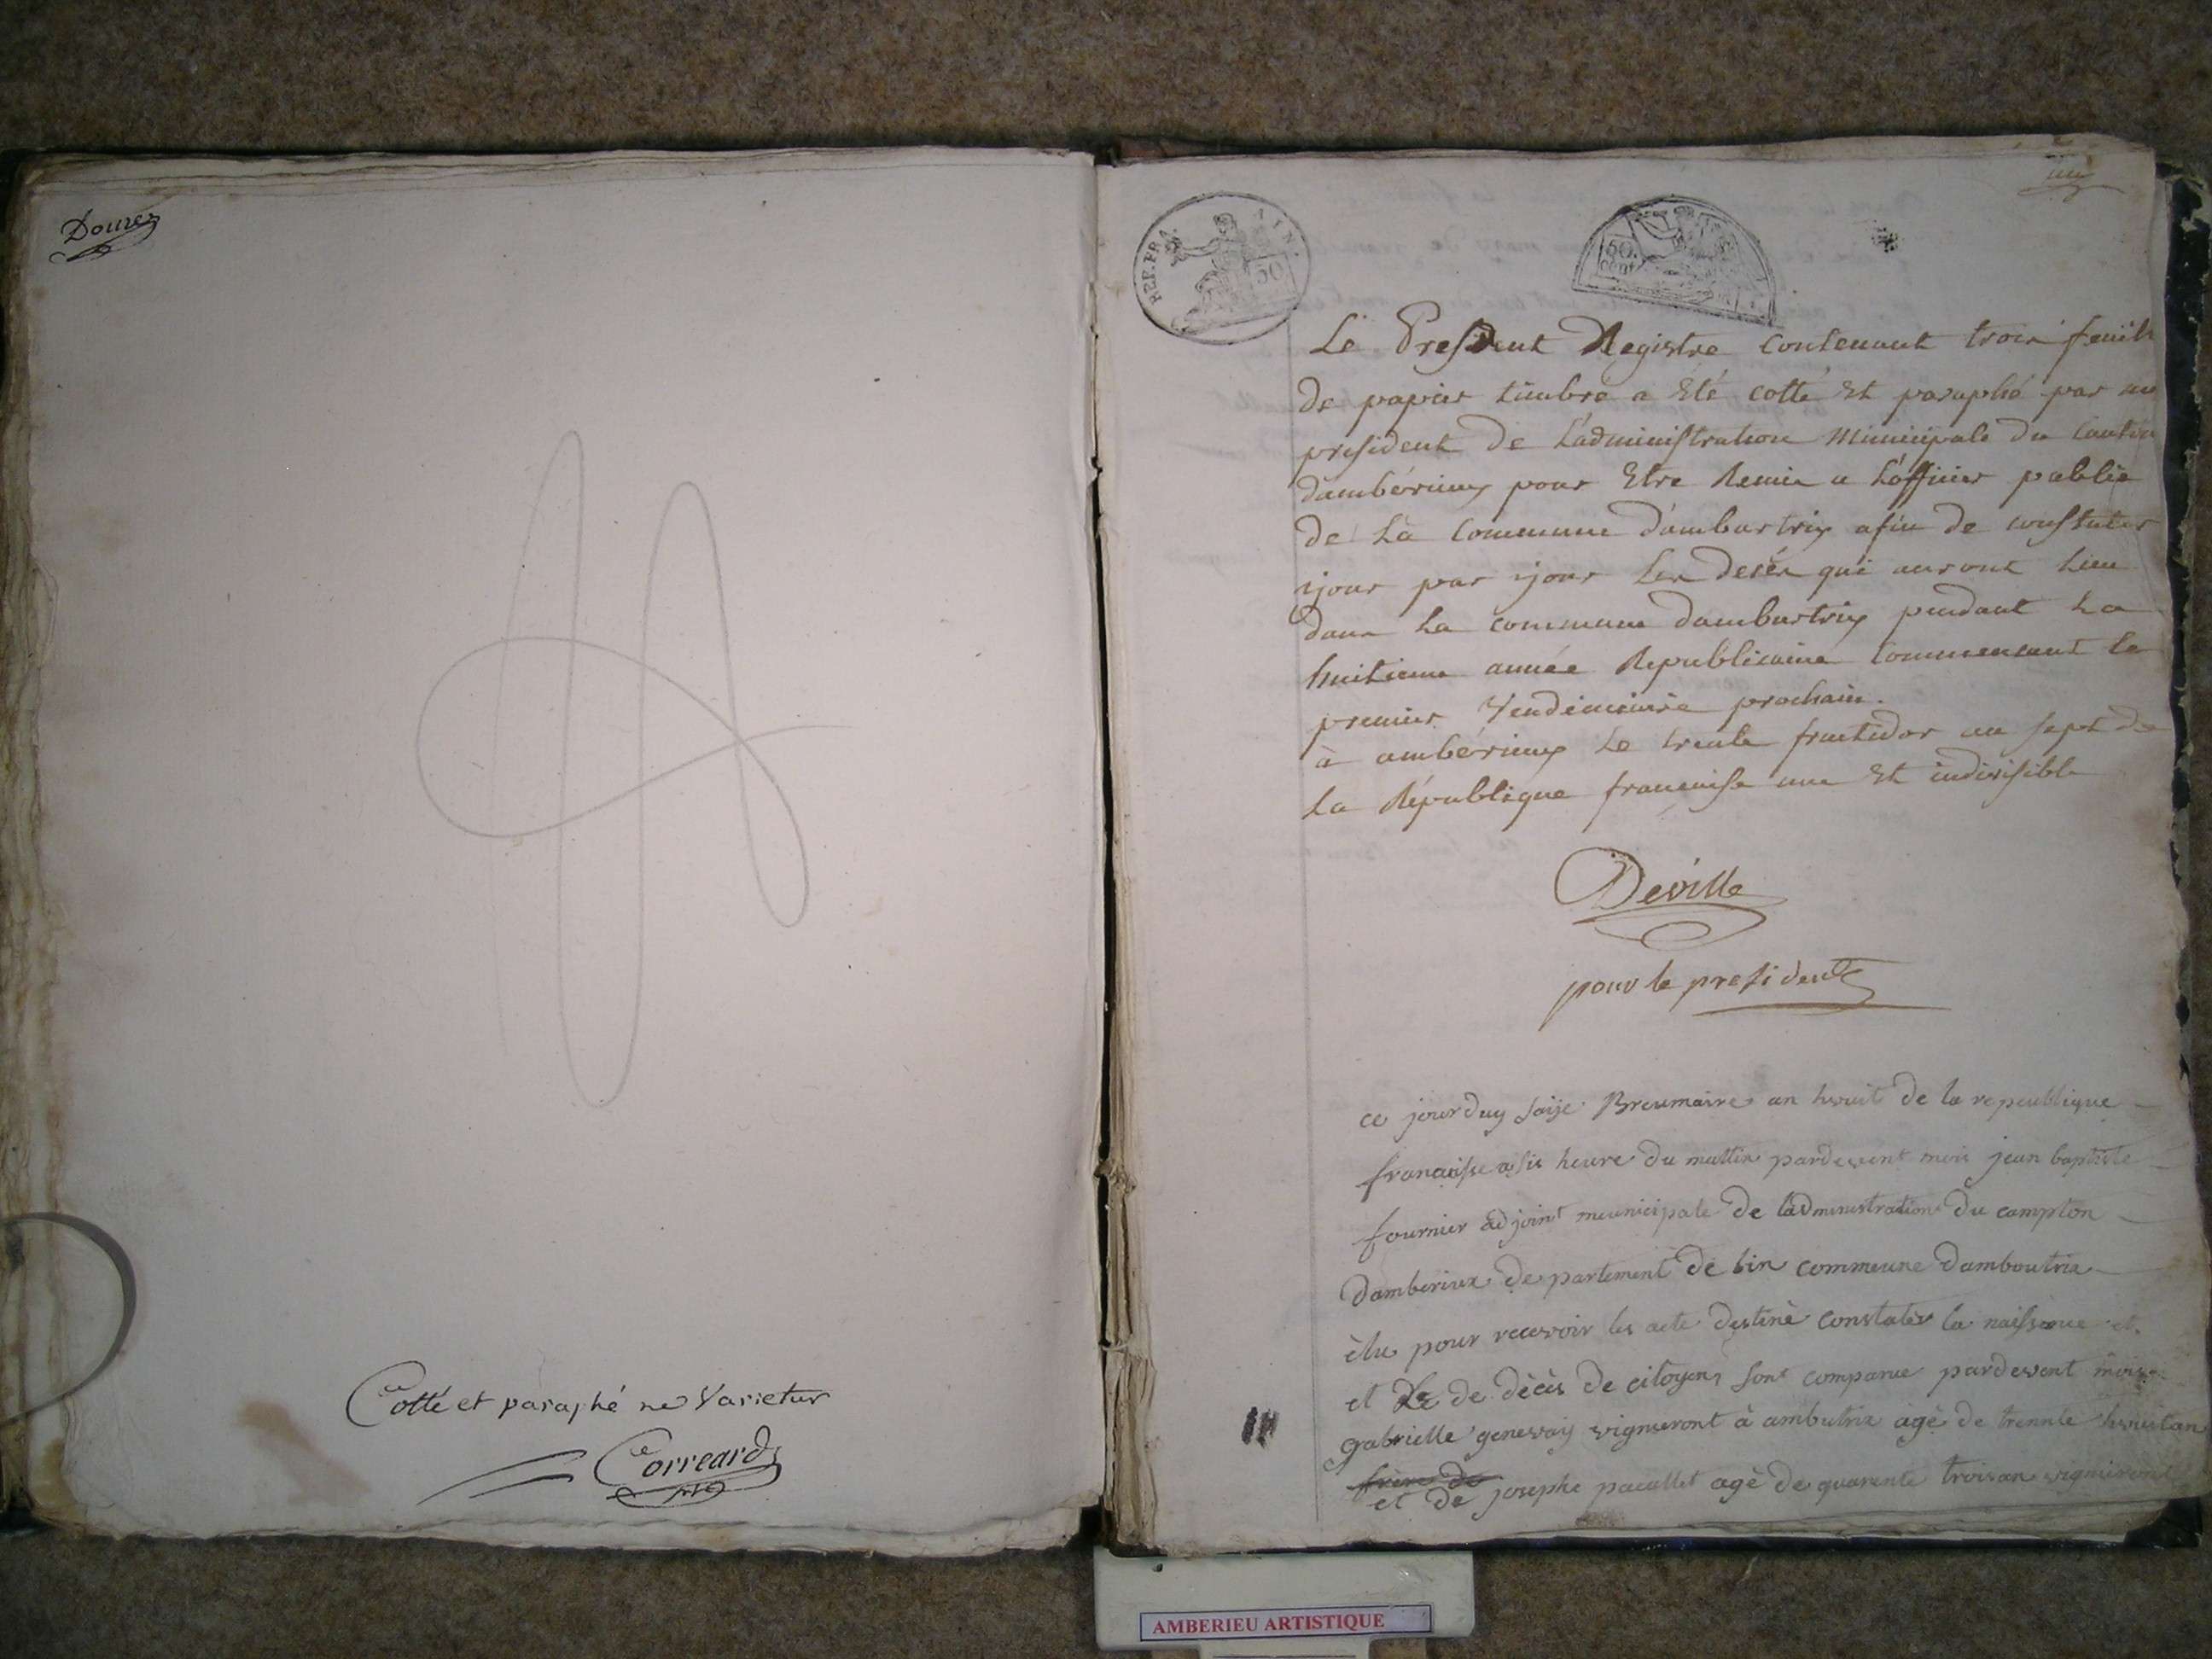 Douze
Cotté et paraphé ne Varietur
Correard
un
REP. FRA. AIN.
50
50.
cent
Le Present Registre Contenant trois feuill
De papier timbré a Eté cotté Et paraphé par
president De L'administration Municipale Du Canton
Dambérieux pour Etre Remis a L'officier public
De La Commune D'ambutrix afin De constater
jour par jour Les Decés qui auront Lieu
Dans La commune Dambutrix pendant La
huitieme année Republicaine Commencant le
premier Vendemiaire prochain.
à ambérieux Le trente fructidor an sept De
La République francaise une Et indivisible
Deville
pour le president
ce jourduy saije Breumaire an hwit de la republique
francaisse a sis heure Du mattin pardevent moi jean baptiste
fournier adjoint meunicipale De ladministration Du campton
Damberieux Departement De lin commeune Damboutrix
élu pour recevoir les acte Destiné Constater la naissance et
et De De décés De citoyens sont comparue pardevent moi
gabrielle genevay vigneront à ambutrix agé de trennte hwit an
frere de
et De josephe pacullet agé De quarente trois an vigneront
AMBERIEU ARTISTIQUE